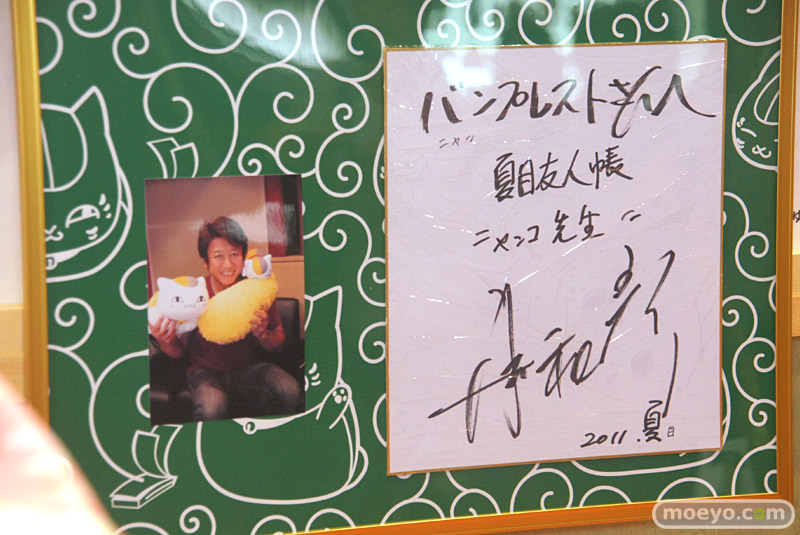 バンプレストさんへ
ニャン
夏目友人帳
ニャンコ先生
井上和彦
2011.夏目
moeyo.com